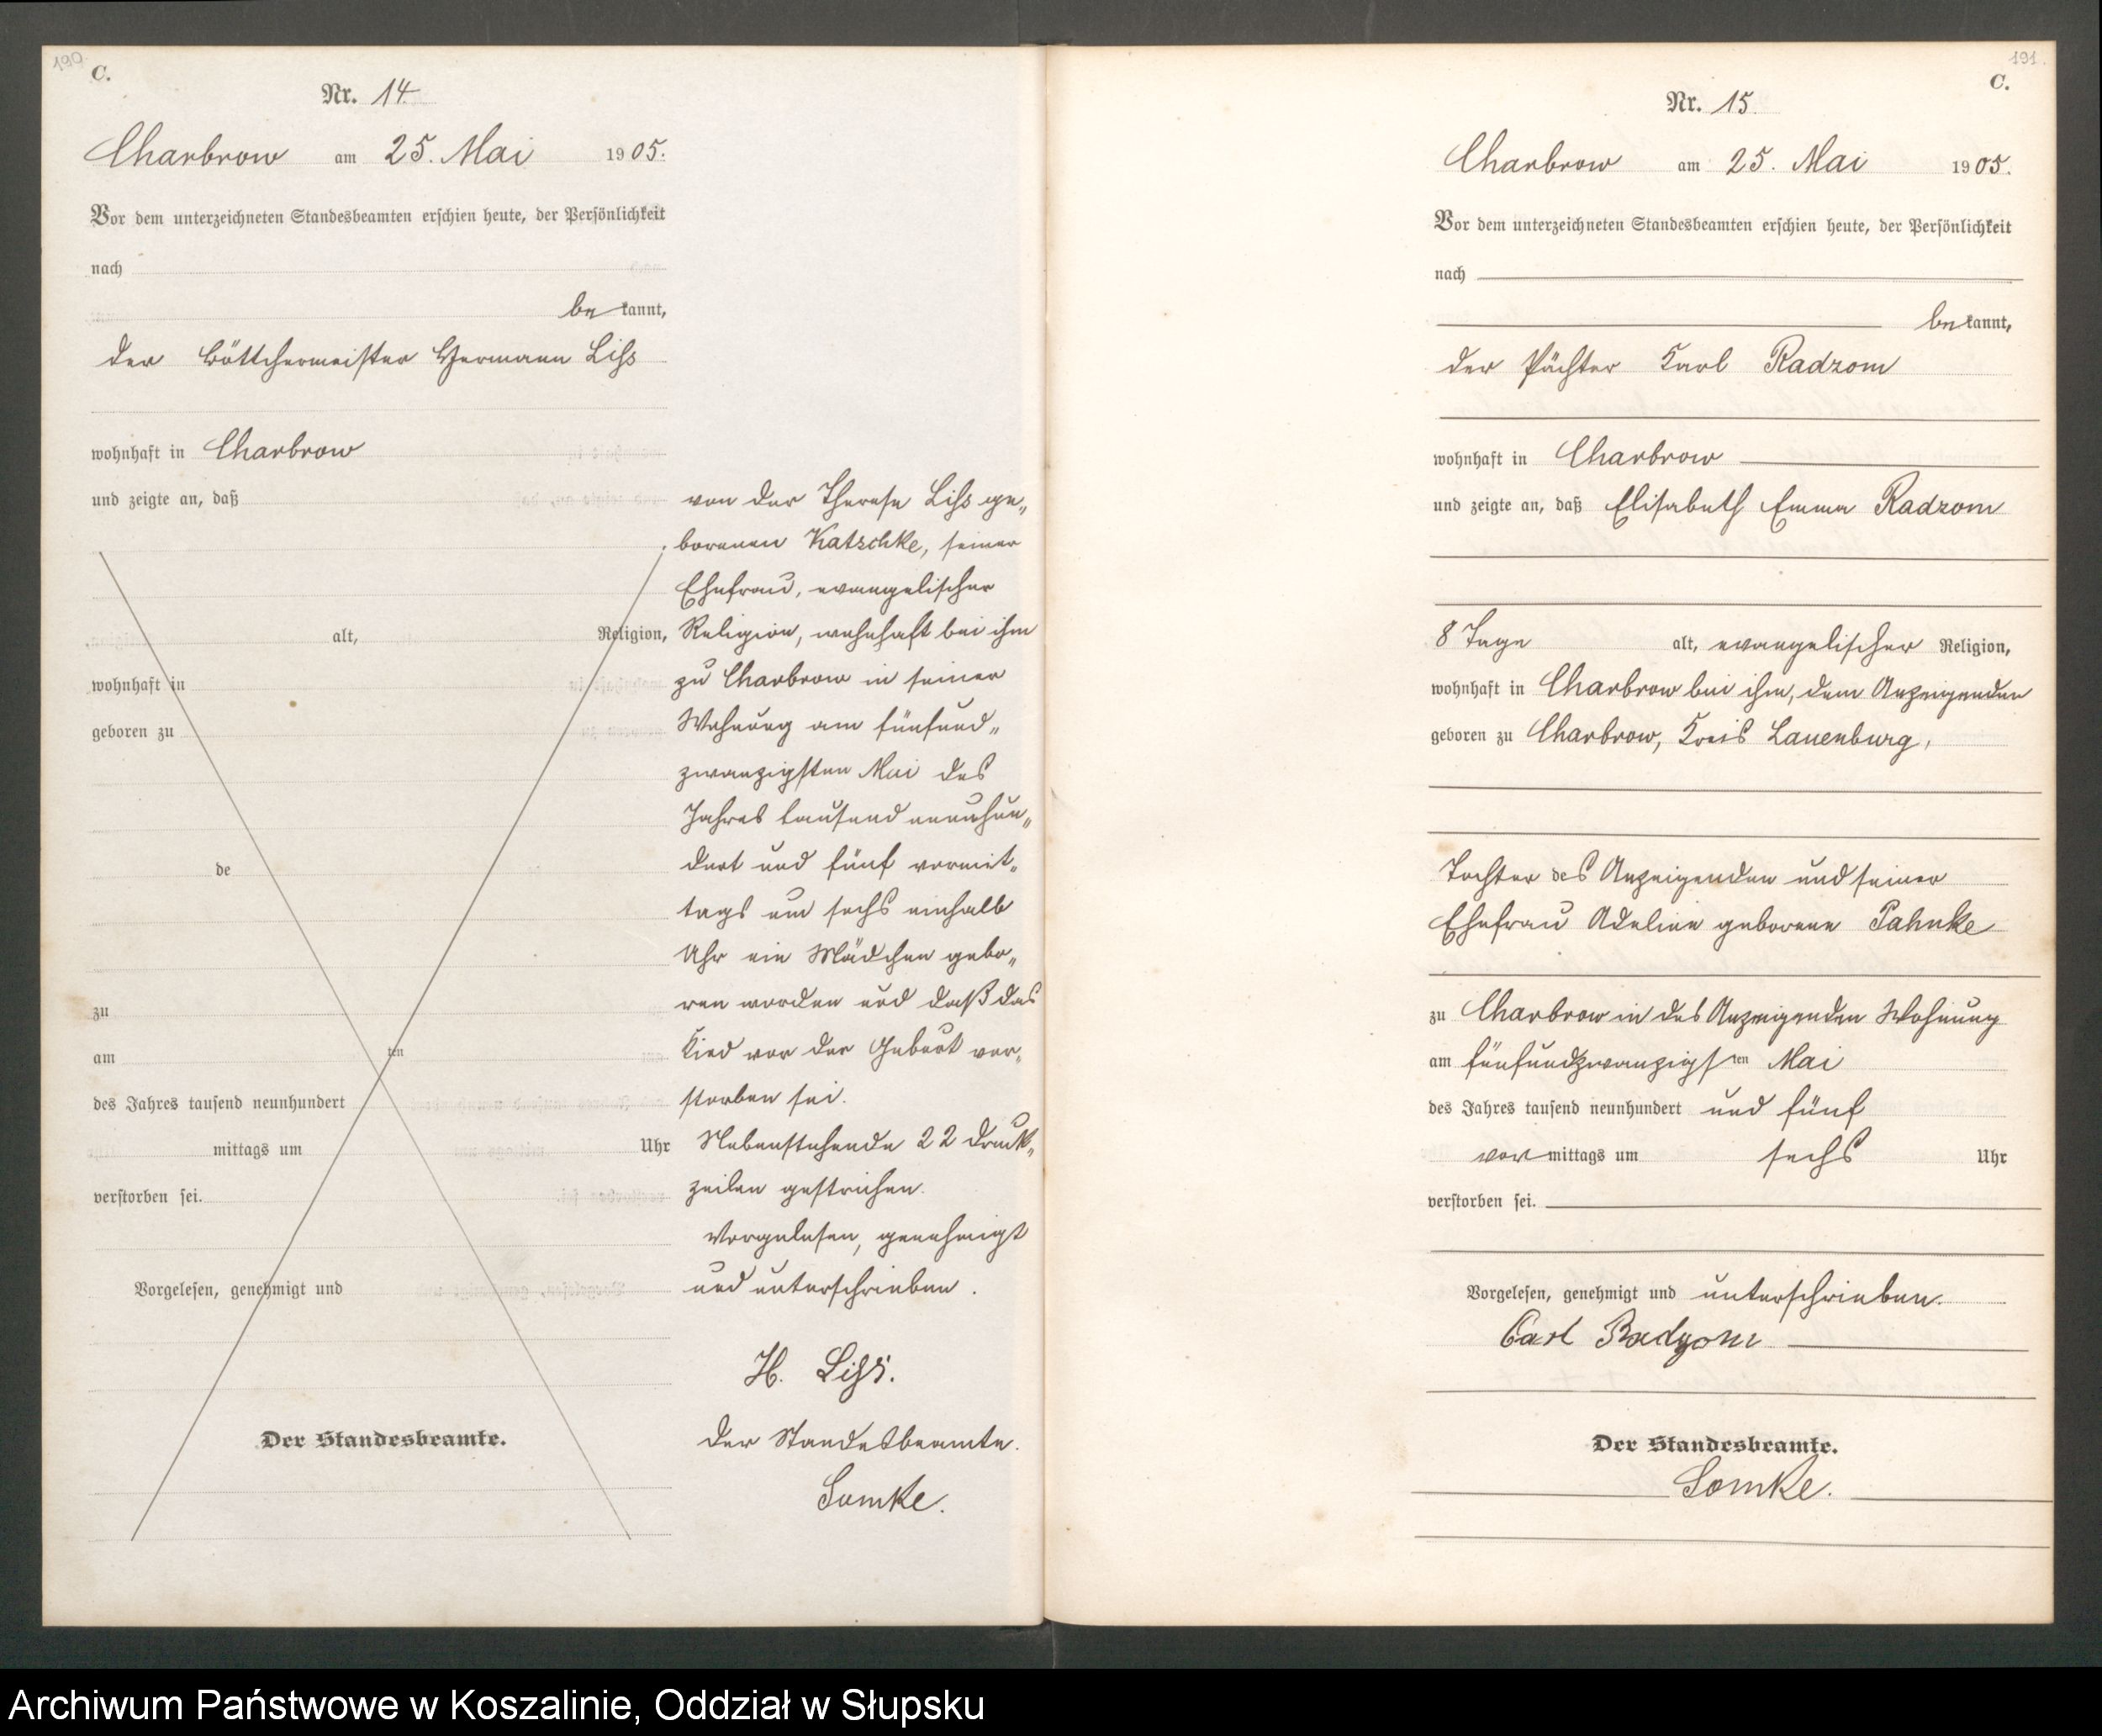 190.
C.
Nr. 14.
Charbrow am 25. Mai 1905.
Vor dem unterzeichneten Standesbeamten erschien heute, der Persönlichkeit
nach
be kannt,
der Böttchermeister Hermann Liss
wohnhaft in Charbrow
und zeigte an, daß
alt, Religion,
wohnhaft in
geboren zu
de
zu
am ten
des Jahres tausend neunhundert
mittags um Uhr
verstorben sei.
Vorgelesen, genehmigt und
Der Standesbeamte.
von der Therese Liss ge„
borenen Katschke, seiner
Ehefrau, evangelischer
Religion, wohnhaft bei ihm
zu Charbrow in seiner
Wohnung am fünfund„
zwanzigsten Mai des
Jahres tausend neunhun„
dert und fünf vormit„
tags um sechs einhalb
Uhr ein Mädchen gebo„
ren worden und daß das
Kind vor der Geburt ver„
storben sei.
Nebenstehende 22 Druck„
zeilen gestrichen.
Vorgelesen, genehmigt
und unterschrieben.
H. Liss.
Der Standesbeamte.
Somke.
191.
C.
Nr. 15.
Charbrow am 25. Mai 1905.
Vor dem unterzeichneten Standesbeamten erschien heute, der Persönlichkeit
nach
be kannt,
der Pächter Karl Radzom
wohnhaft in Charbrow
und zeigte an, daß Elisabeth Emma Radzom
8 Tage alt, evangelischer Religion,
wohnhaft in Charbrow bei ihm, dem Anzeigenden
geboren zu Charbrow, Kreis Lauenburg,
Tochter des Anzeigenden und seiner
Ehefrau Adeline geborene Pahnke
zu Charbrow in des Anzeigenden Wohnung
am fünfundzwanzigsten Mai
des Jahres tausend neunhundert und fünf
vor mittags um sechs Uhr
verstorben sei.
Vorgelesen, genehmigt und unterschrieben.
Carl Radzom
Der Standesbeamte.
Somke.
Archiwum Państwowe w Koszalinie, Oddział w Słupsku